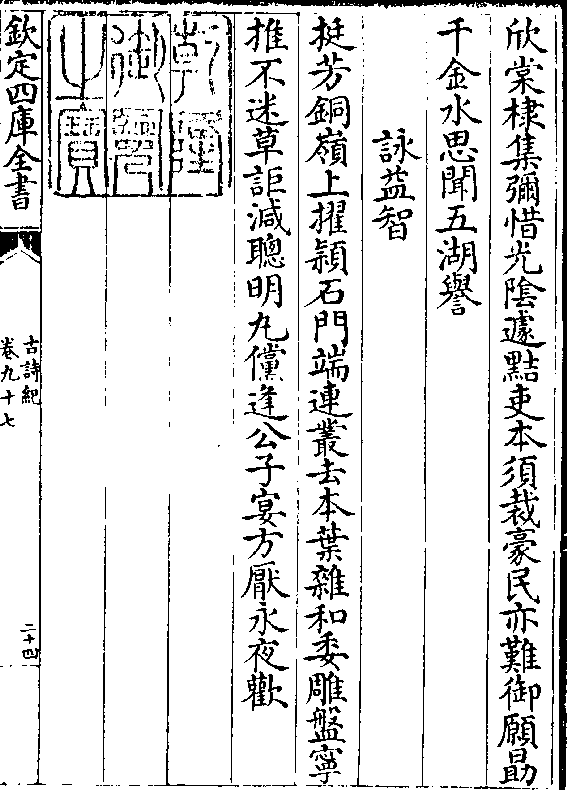 欣棠棣集彌惜光陰遽黠吏本須裁豪民亦難御願勗
千金水思聞五湖譽
詠益智
挺芳銅嶺上擢穎石門端連叢去本葉雜和委雕盤寧
推不迷草詎減聰明丸儻逢公子宴方厭永夜歡
乾隆
御覽
之寶
欽定四庫全書
古詩紀
卷九十七
二十四